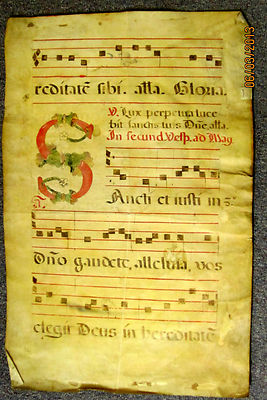 reditatē sibi. alla. Gloria.
V. Lux perpetua luce
bit sanctis tuis Dñe, alla.
In secund. Vesp. ad Mag.
Sancti et iusti in
Dño gaudete, alleluia, vos
elegit Deus in hereditatē
08/09/2013